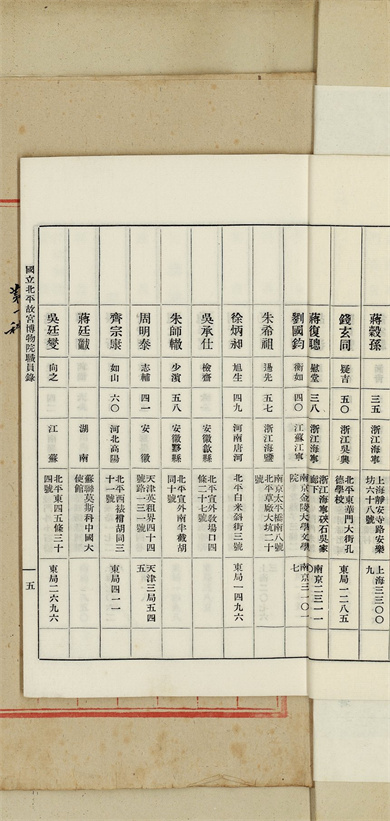 蔣穀孫 三五 浙江海寧 上海靜安寺路安樂坊六十八號 上海三三〇〇九
錢玄同 疑古 五〇 浙江吳興 北平東華門大街孔德學校 東局一二八五
蔣復璁 慰堂 三八 浙江海寧 浙江海寧硤石吳家廊下 南京二三一一
劉國鈞 衡如 四〇 江蘇江寧 南京金陵大學文學院 南京三一〇一七
朱希祖 逷先 五七 浙江海鹽 南京太平橋南八號 北平草廠大坑二十號
徐炳昶 旭生 四九 河南唐河 北平白米斜街三號 東局一四九六
吳承仕 檢齋 安徽歙縣 北平宣外敎場口四條二十七號
朱師轍 少濱 五八 安徽黟縣 北平宣外南半截胡同十號
周明泰 志輔 四一 安徽 天津英租界四十四號路一三一號 天津三局五四五
齊宗康 如山 六〇 河北高陽 北平西裱褙胡同三十一號 東局四一一
蔣廷黻 湖南 蘇聯莫斯科中國大使館
吳廷燮 向之 江蘇 北平東四五條三十四號 東局二六九六
國立北平故宮博物院職員錄
五